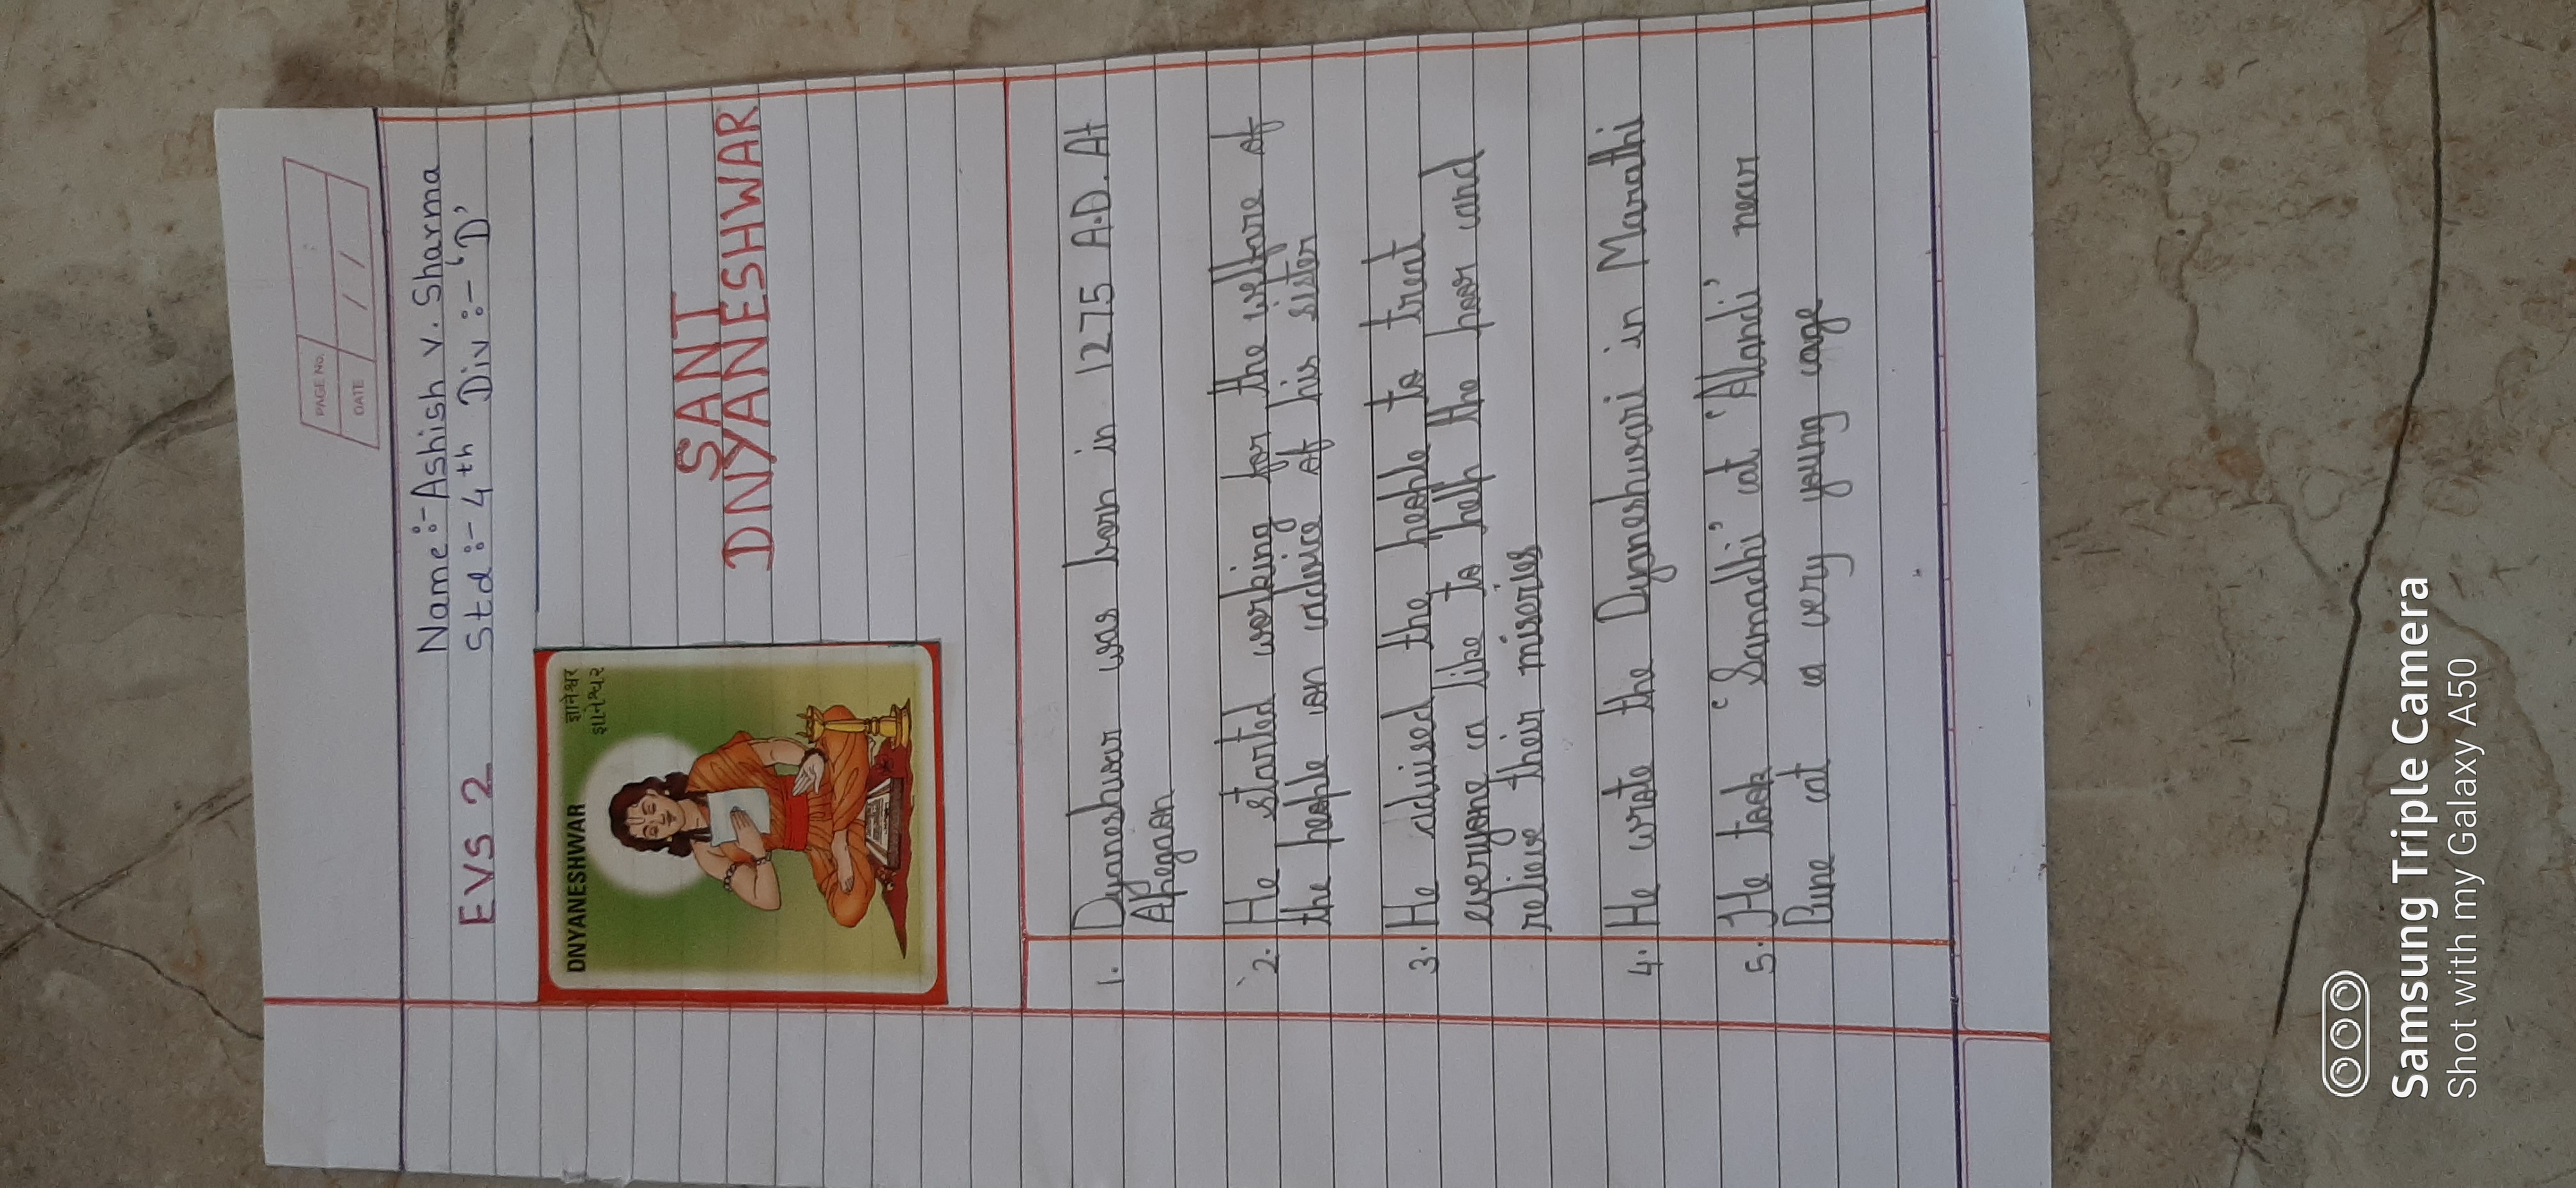 PAGE No.
DATE / /
Name :- Ashish v. Sharma
EVS 2 Std :- 4th Div :- 'D'
DNYANESHWAR
ज्ञानेश्वर
જ્ઞાનેશ્વર
SANT
DNYANESHWAR
1. Dyaneshwar was born in 1275 A.D. At
Apegaon
2. He started working for the welfare of
the people on advice of his sister
3. He advised the people to treat
everyone a like to help the poor and
relieve their miseries
4. He wrote the Dyneshwari in Marathi
5. He took "Samadhi' at 'Alandi' near
Pune at a very young age
Samsung Triple Camera
Shot with my Galaxy A50